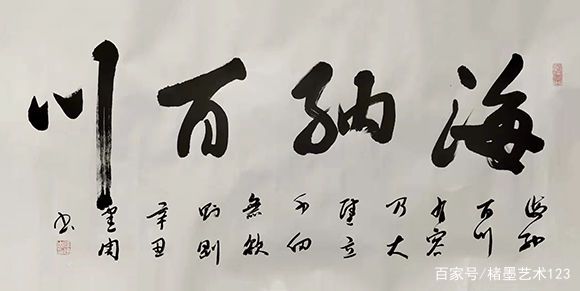 海纳百川
海纳
百川
有容
乃大
壁立
千仞
無欲
则刚
辛丑
书
百家号/楮墨艺术123